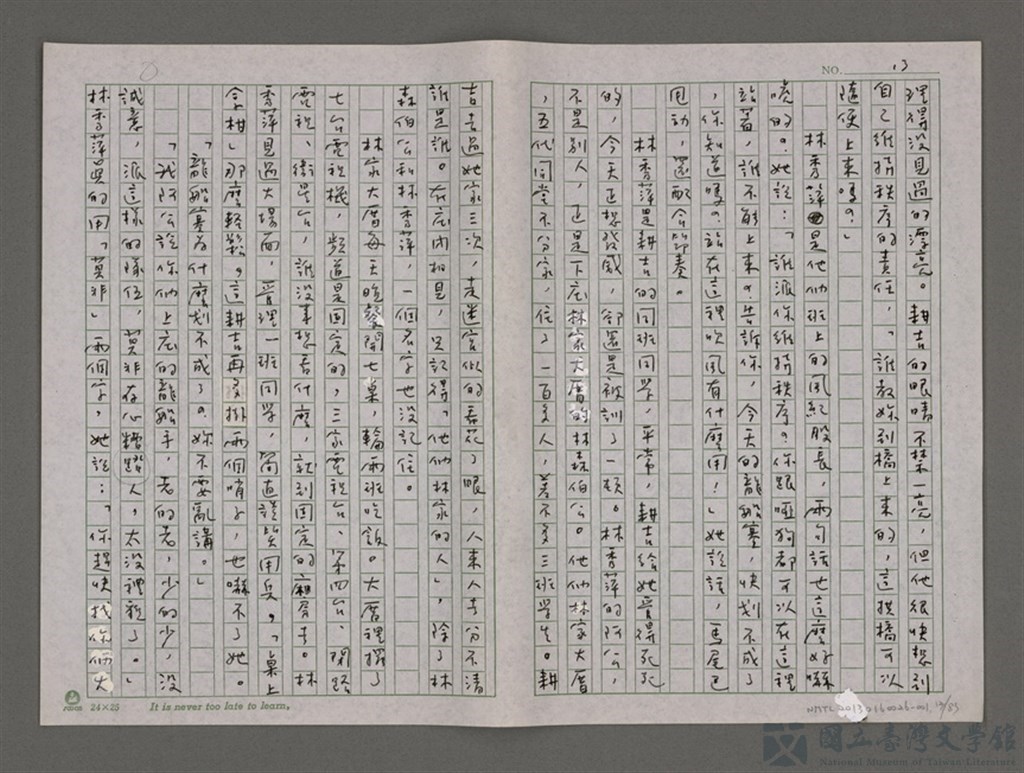 NO. 13
理得沒見過的漂亮。耕吉的眼睛不禁一亮，但他很快想到
自己維持秩序的責任，「誰教妳到橋上來的，這拱橋可以
隨便上來嗎？」
林秀萍是他們班上的風紀股長，兩句話也這麼好嚇
唬的。她說：「誰派你維持秩序？你跟啞狗都可以在這裡
站著，誰不能上來？告訴你，今天的龍船賽，快划不成了
，你知道嗎？站在這裡吹風有什麼用！」她說話，馬尾巴
甩動，還配合節奏。
林秀萍是耕吉的同班同學，平常，耕吉給她管得死死
的，今天正想發威，卻還是被訓了一頓。林秀萍的阿公，
不是別人，正是下庄林家大厝的林森伯公。他們林家大厝
，五代同堂不分家，住了一百多人，差不多三班學生。耕
吉去過她家三次，走迷宮似的看花了眼，人來人去分不清
誰是誰。在庄內相見，只記得「他們林家的人」，除了林
森伯公和林秀萍，一個名字也沒記住。
林家大厝每天晚餐開七桌，輪兩班吃飯。大厝裡擺了
七台電視機，頻道是固定的，三家電視台、第四台、閉路
電視、衛星台，誰沒事想看什麼，就到固定的廂房去。林
秀萍見過大場面，管理一班同學，簡直談笑用兵，「桌上
拿柑」那麼輕鬆。這耕吉再多掛兩個哨子，也嚇不了她。
「龍船賽為什麼划不成了？妳不要亂講。」
「我阿公說你們上庄的龍船手，老的老，少的少，沒
誠意，派這樣的隊伍，莫非存心糟蹋人，太沒禮貌了。」
林秀萍果的用「莫非」兩個字，她說：「你趕快找你們大
24×25 It is never too late to learn.
NMTL20130160026-001, 13/83
國立臺灣文學館
National Museum of Taiwan Literature